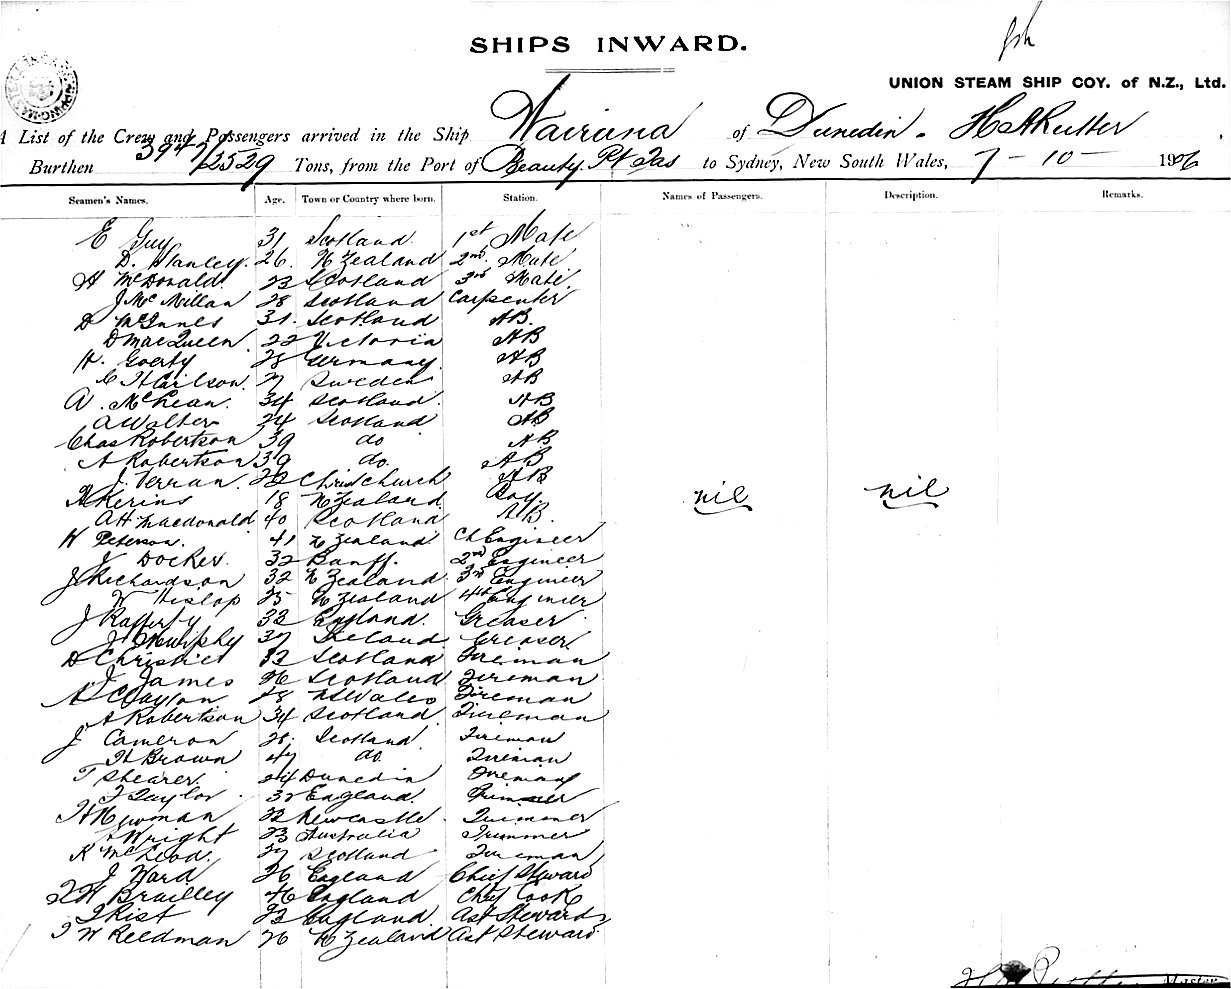 SHIPS INWARD.
UNION STEAM SHIP COY. of N.Z., Ltd.
A List of the Crew and Passengers arrived in the Ship Wairuna of Dunedin. H A Rutter,
Burthen 3947/2529 Tons, from the Port of Beauty Pt Tas to Sydney, New South Wales, 7-10-1906
Seamen's Names. Age. Town or Country where born. Station. Names of Passengers. Description. Remarks.
E Guy 31 Scotland 1st Mate
D. Stanley. 26. N Zealand 2nd. Mate
H McDonald 23 Scotland 3rd Mate.
J McMillan 28 Scotland Carpenter
D McInnes 31. Scotland AB.
D MacQueen 22 Victoria AB
H. Goerty 28 Germany. AB
C H Carlson. 27 Sweden AB
A. McLean. 34 Scotland. AB
A Walter 24 Scotland AB
Chas Robertson 39 do AB
A Robertson 39 do. AB
J. Verran. 22 Christchurch AB
Kerins 18 N Zealand. Boy.
nil nil
A H Macdonald 40 Scotland AB.
W Peterson. 41 N Zealand Ch Engineer
J Docker. 32 Banff. 2nd Engineer
J Richardson 32 N Zealand. 3rd Engineer
W Hislop 25 N Zealand 4th Engineer
J Rafferty 32 England. Greaser
J Murphy 37 Ireland Greaser
D Christie 32 Scotland Fireman
J James 26 Scotland Fireman
A Clayton 48 NSWales Fireman
A Robertson 34 Scotland Fireman
J Cameron 28. Scotland Fireman
H Brown 47 do. Fireman
T Shearer. 24 Dunedin Fireman
T Taylor. 32 England. Trimmer
H Newman 22 Newcastle. Trimmer
Wright 23 Australia Trimmer
K McLeod. 27 Scotland Fireman
J Ward 26 England Chief Steward
F W Brailley 46 England Chief Cook
J Rist 23 England Ast Steward
F W Reedman 26 N Zealand Ast Steward
H A Rutter Master